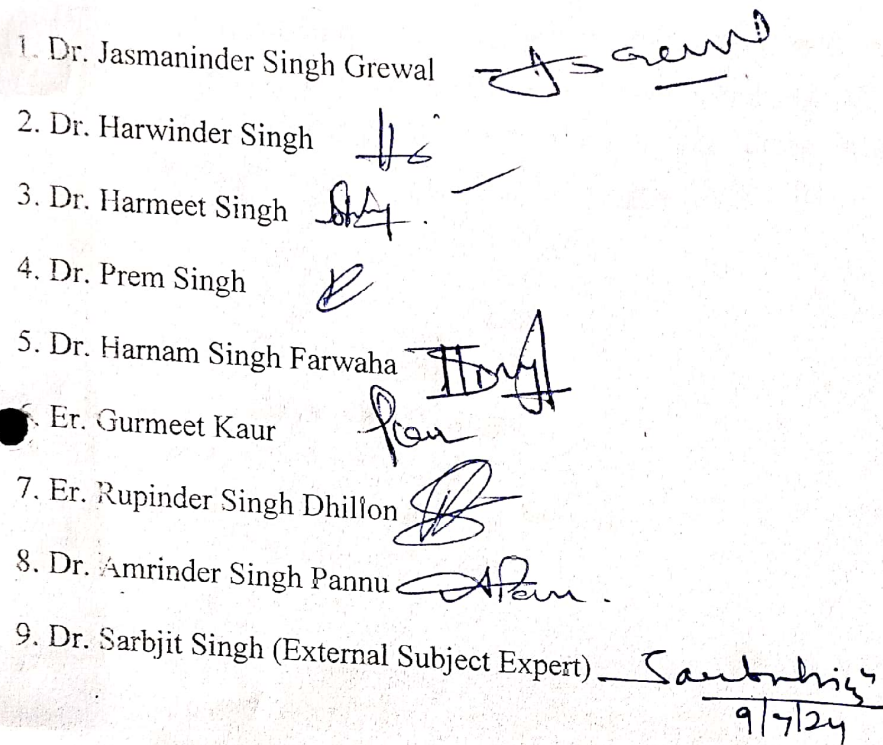 1. Dr. Jasmaninder Singh Grewal
2. Dr. Harwinder Singh
3. Dr. Harmeet Singh
4. Dr. Prem Singh
5. Dr. Harnam Singh Farwaha
Er. Gurmeet Kaur
7. Er. Rupinder Singh Dhillon
8. Dr. Amrinder Singh Pannu
9. Dr. Sarbjit Singh (External Subject Expert)
9/7/24